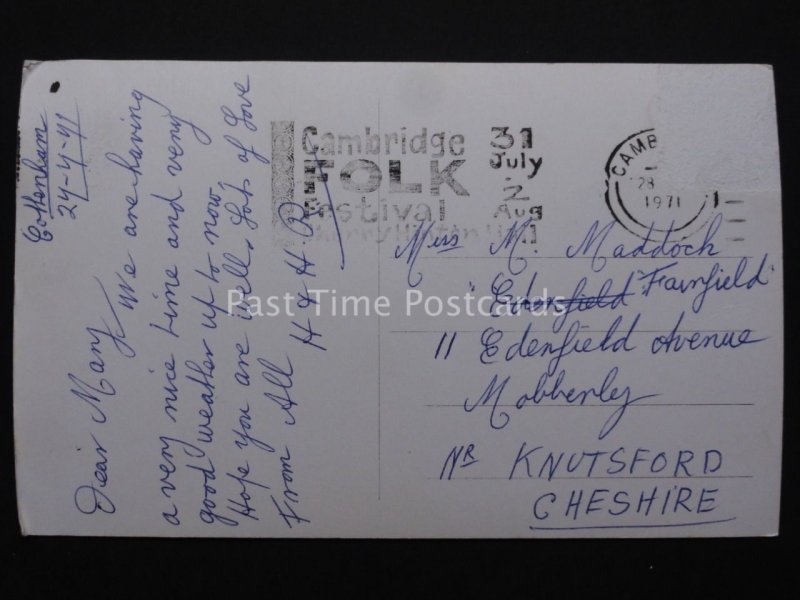 Cottenham
24-4-71
Dear Mary
We are having
a very nice time and very
good weather up to now,
Hope you are well, Lots of Love
From All H & H
Cambridge
FOLK
Festival
Cherry Hinton Hall
31
July
2
Aug
CAMB
28
1971
Miss M. Maddock
"Fairfield"
11 Edenfield Avenue
Mobberley
NR KNUTSFORD
CHESHIRE
Past Time Postcards